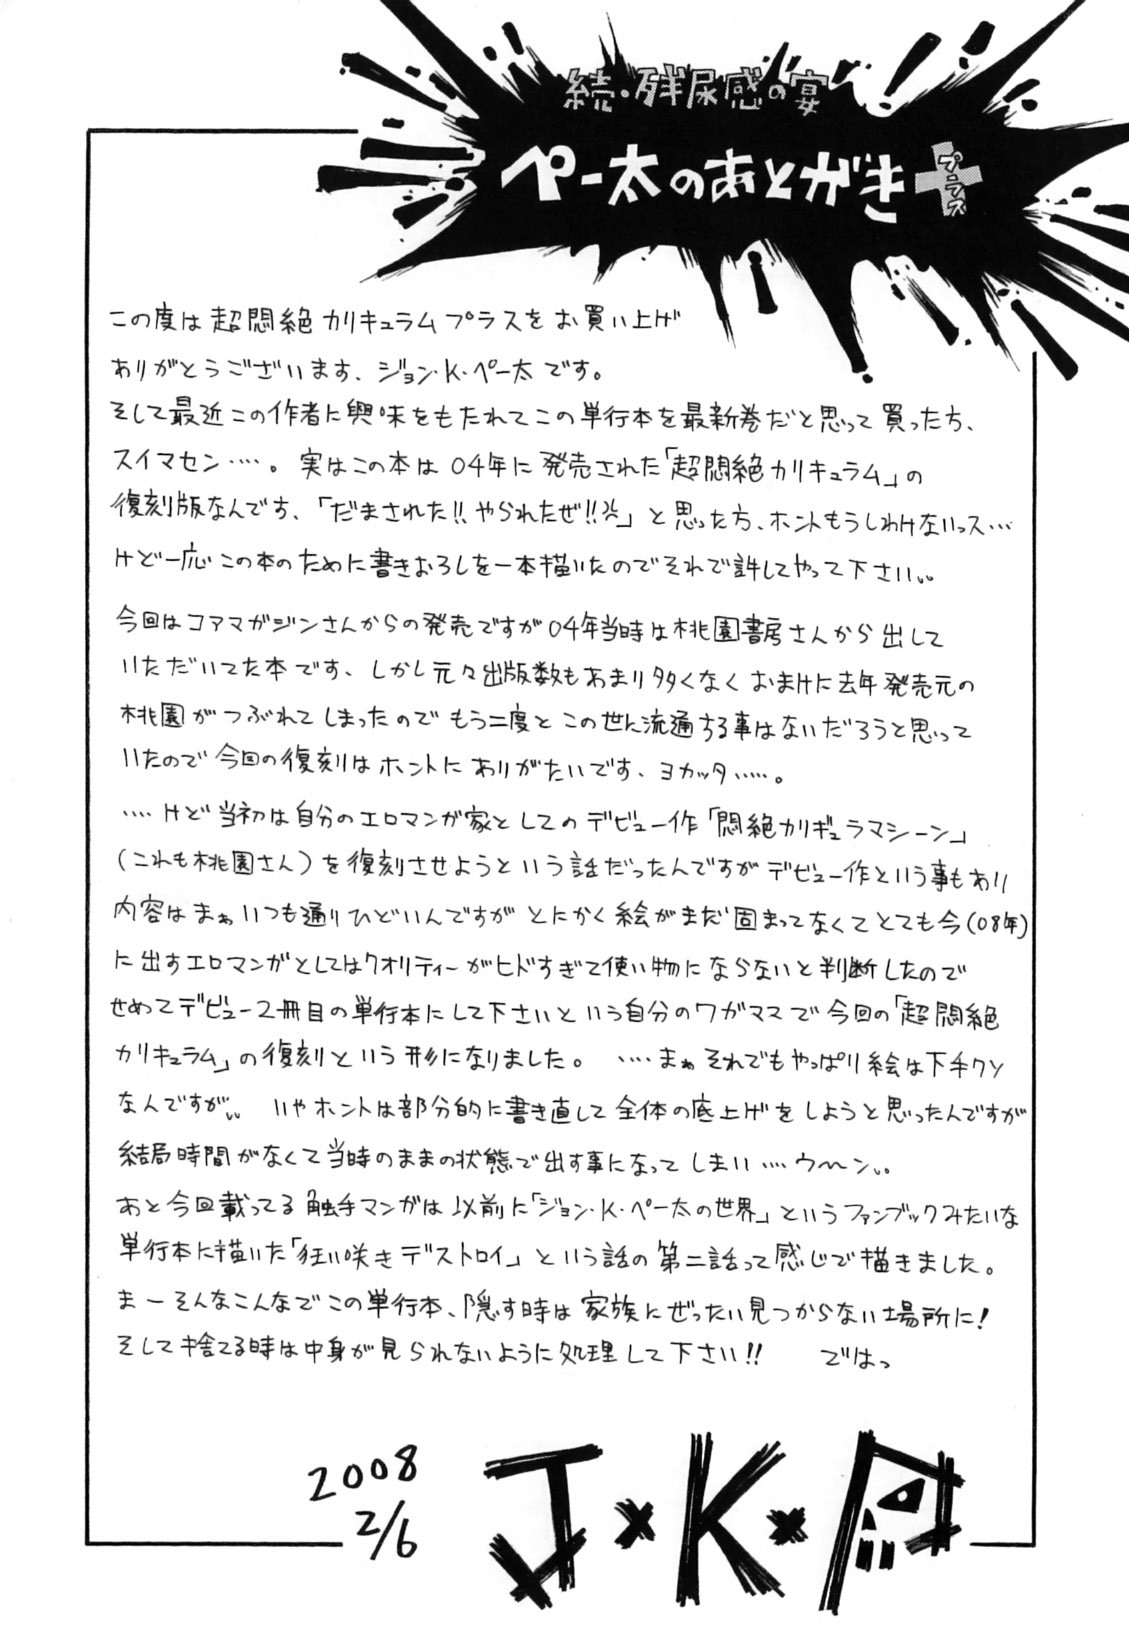 続・残尿感の宴
ペー太のあとがき
プラス
この度は超悶絶カリキュラムプラスをお買い上げ
ありがとうございます、ジョン・K・ペー太です。
そして最近この作者に興味をもたれてこの単行本を最新巻だと思って買った方、
スイマセン‥‥。実はこの本は04年に発売された「超悶絶カリキュラム」の
復刻版なんです、「だまされた!!やられたぜ!!」と思った方、ホントもうしわけないっス…
けど一応この本のために書きおろしを一本描いたのでそれで許してやって下さい‥
今回はコアマガジンさんからの発売ですが04年当時は桃園書房さんから出して
いただいてた本です、しかし元々出版数もあまり多くなくおまけに去年発売元の
桃園がつぶれてしまったのでもう二度とこの世に流通する事はないだろうと思って
いたので今回の復刻はホントにありがたいです、ヨカッタ‥‥‥。
‥‥けど当初は自分のエロマンガ家としてのデビュー作「悶絶カリギュラマシーン」
(これも桃園さん)を復刻させようという話だったんですがデビュー作という事もあり
内容はまぁいつも通りひどいんですがとにかく絵がまだ固まってなくてとても今(08年)
に出すエロマンガとしてはクオリティーがヒドすぎて使い物にならないと判断したので
せめてデビュー2冊目の単行本にして下さいという自分のワガママで今回の「超悶絶
カリキュラム」の復刻という形になりました。‥‥まぁそれでもやっぱり絵は下手クソ
なんですが‥ いやホントは部分的に書き直して全体の底上げをしようと思ったんですが
結局時間がなくて当時のままの状態で出す事になってしまい‥‥ウ〜ン‥
あと今回載ってる触手マンガは以前に「ジョン・K・ペー太の世界」というファンブックみたいな
単行本に描いた「狂い咲きデストロイ」という話の第二話って感じで描きました。
まーそんなこんなでこの単行本、隠す時は家族にぜったい見つからない場所に!
そして捨てる時は中身が見られないように処理して下さい!! ではっ
2008
2/6
J×K×P